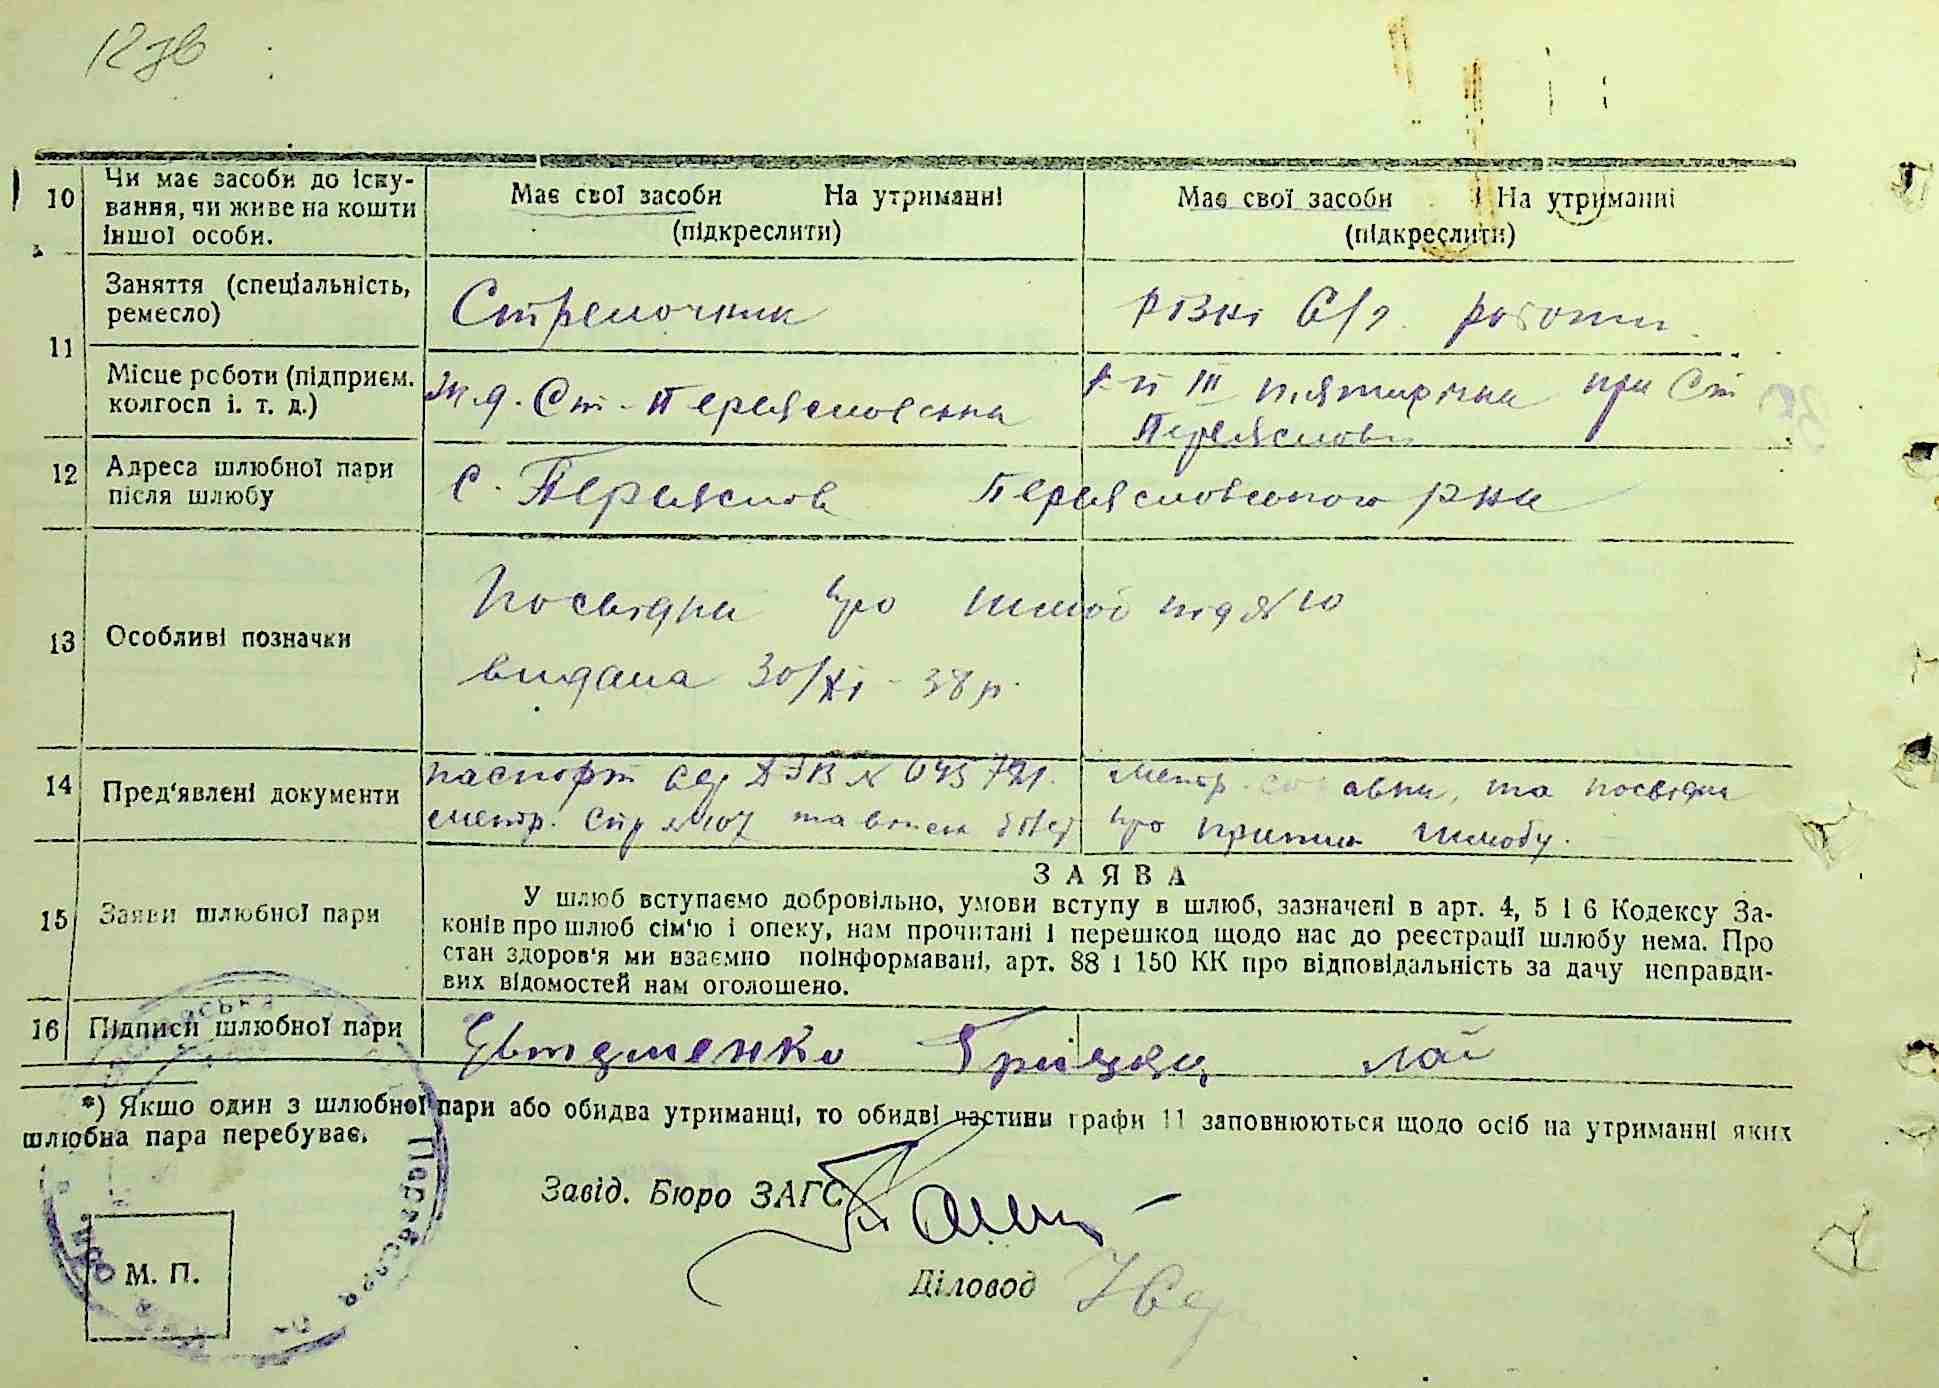 10
Чи має засоби до існу-
вання, чи живе на кошти
іншої особи.
Має свої засоби На утриманні
(підкреслити)
Має свої засоби На утриманні
(підкреслити)
11
Заняття (спеціальність,
ремесло)
Стрелочник
різні С/г. роботи
Місце роботи (підприєм.
колгосп і. т. д.)
Ж.д. Ст-Переяславська
к-п III п'ятирічка при Ст
Переяслав
12
Адреса шлюбної пари
після шлюбу
с. Переяслав Переяславського р-на
13
Особливі позначки
Посвідка про шлюб
видана 30/XI-38 р.
14
Пред'явлені документи
паспорт
метр. та
метр. та посвідка
про шлюбу.
15
Заяви шлюбної пари
ЗАЯВА
У шлюб вступаємо добровільно, умови вступу в шлюб, зазначені в арт. 4, 5 і 6 Кодексу За-
конів про шлюб сім'ю і опеку, нам прочитані і перешкод щодо нас до реєстрації шлюбу нема. Про
стан здоров'я ми взаємно поінформавані, арт. 88 і 150 КК про відповідальність за дачу неправди-
вих відомостей нам оголошено.
16
Підписи шлюбної пари
*) Якщо один з шлюбної пари або обидва утриманці, то обидві частини графи 11 заповнюються щодо осіб на утриманні яких
шлюбна пара перебуває.
Завід. Бюро ЗАГС
Діловод
М. П.